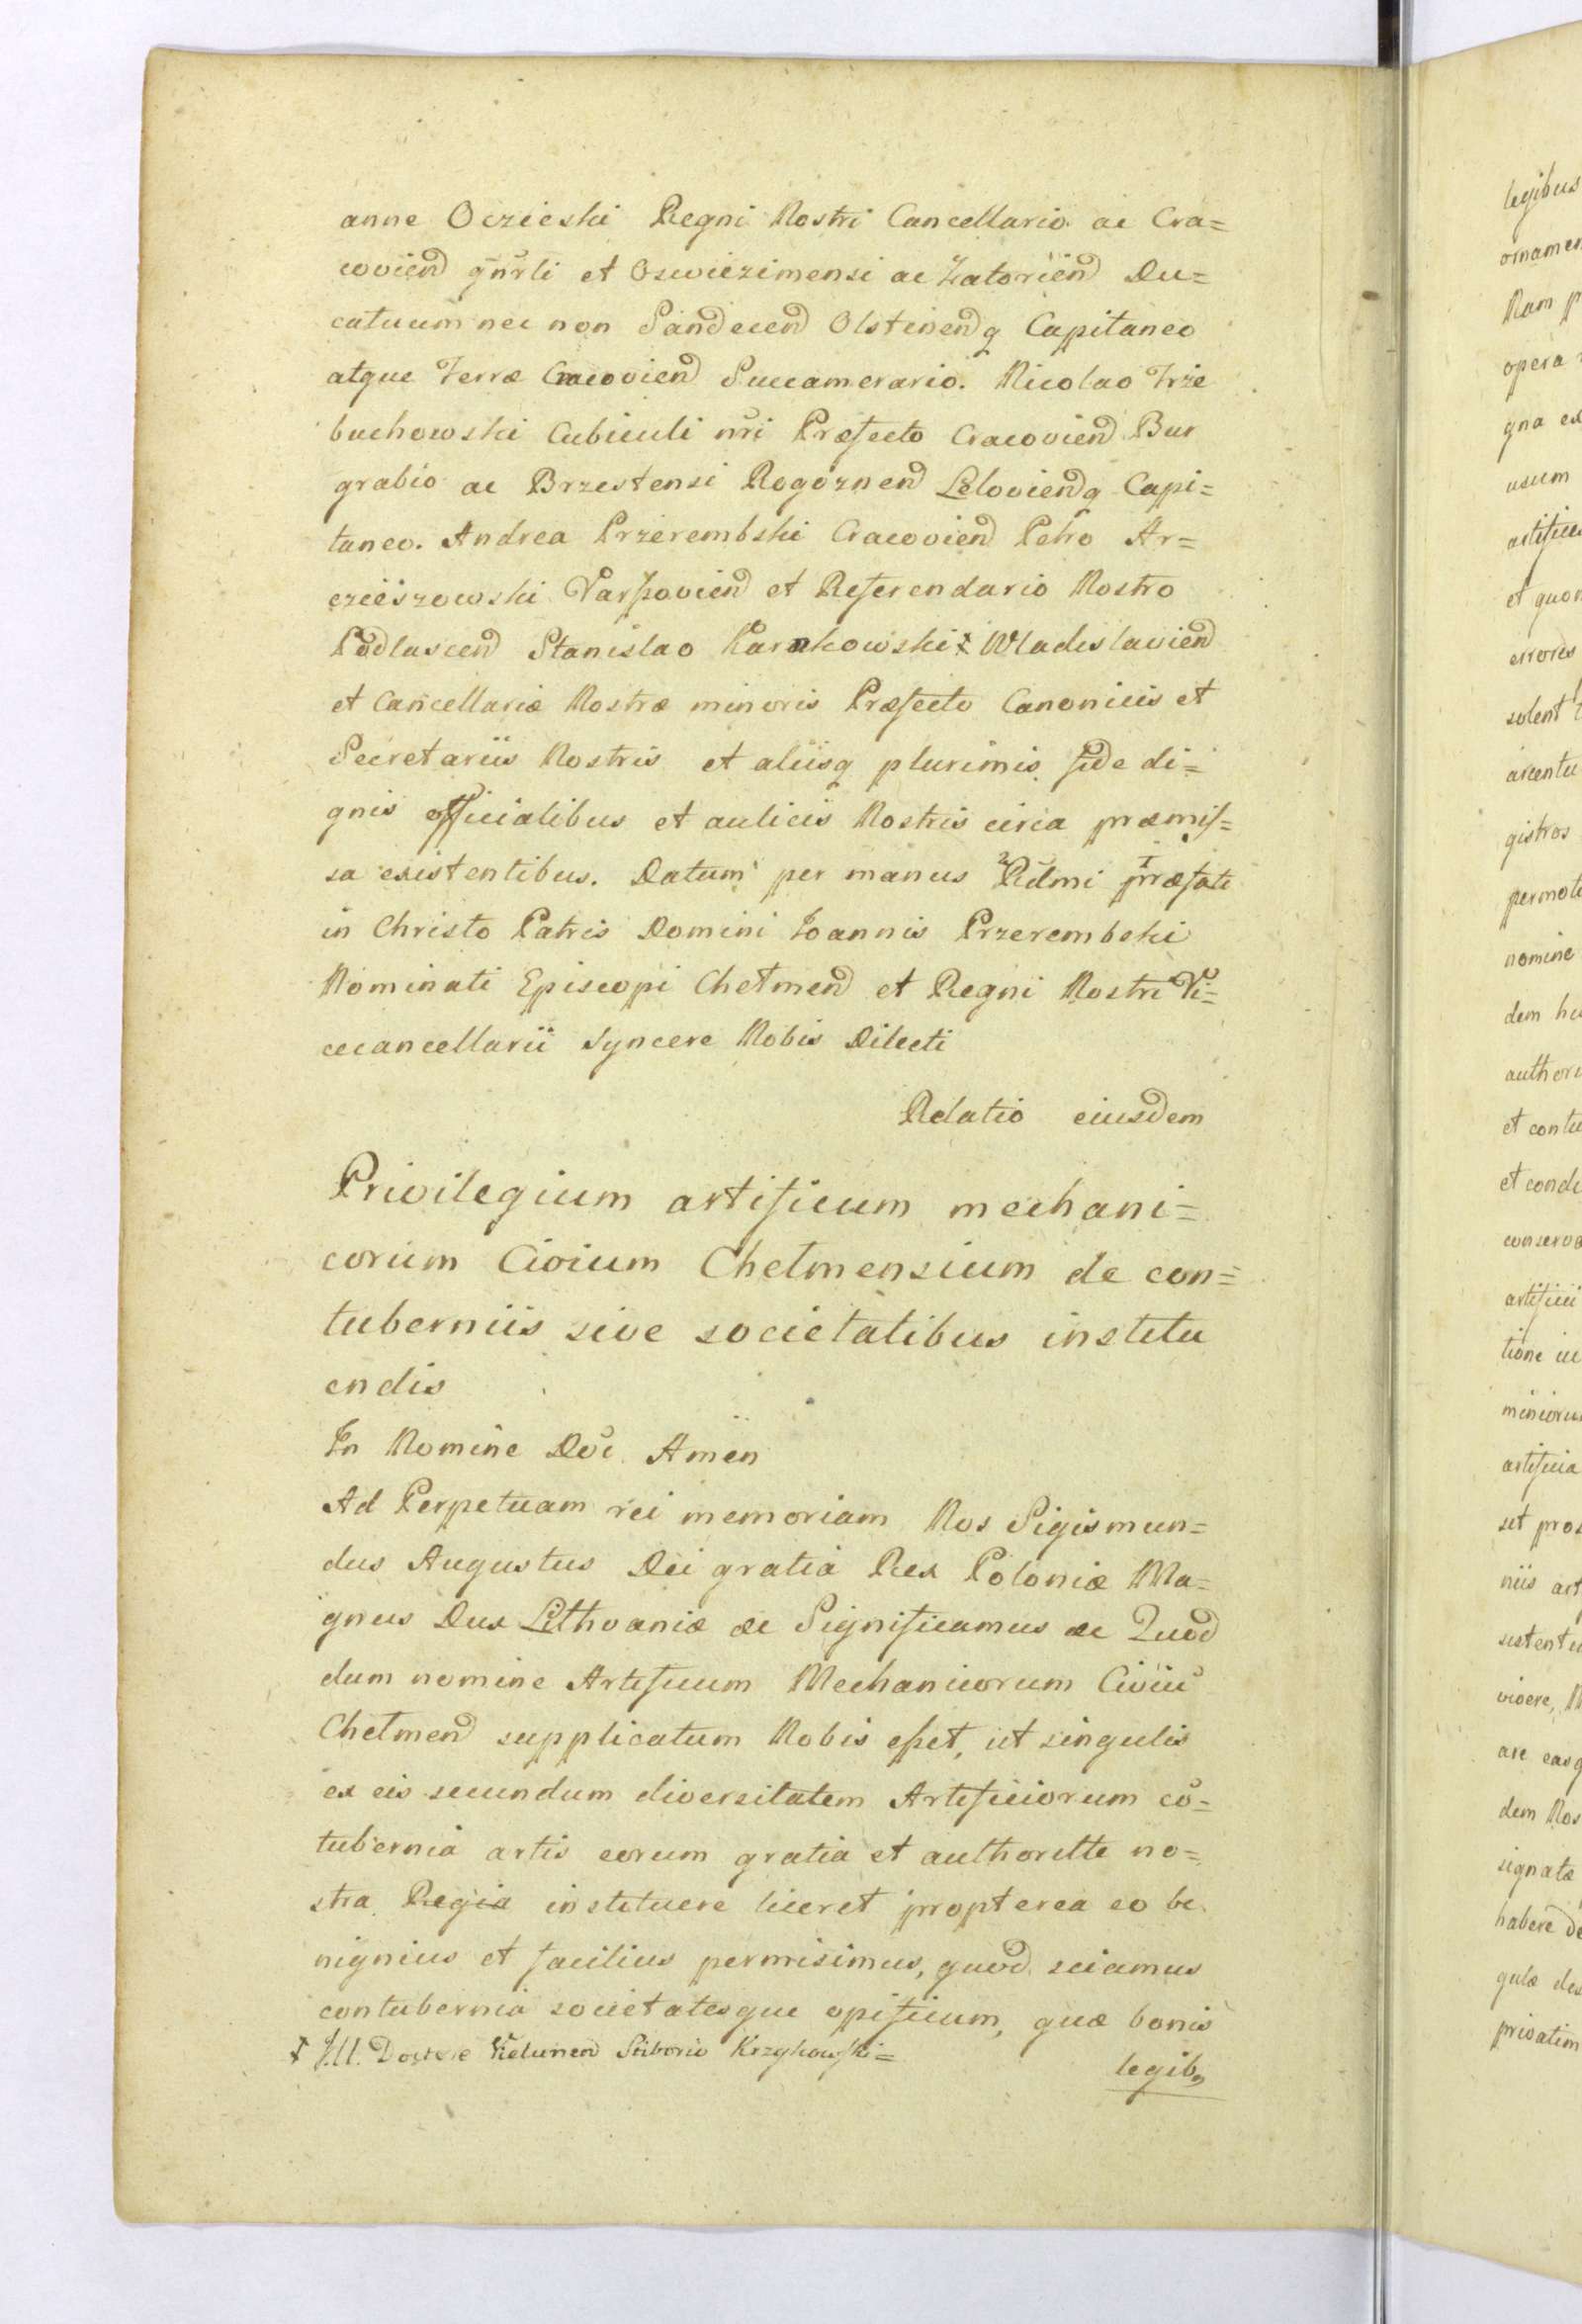 anne Oczieski Regni Nostri Cancellario ac Cra=
coviend gnrli et Oswiezimensi ac Zatoriend Du=
catuum nec non Sandecend Olstinendq Capitaneo
atque Terræ Cracoviend Succamerario. Nicolao Trze
buchowski Cubiculi nri Præfecto Cracoviend Bur
grabio ac Brzestensi Rogoznend Leloviendq Capi=
taneo. Andrea Przerembski Cracoviend Petro Ar=
czieszowski Varssoviend et Referendario Nostro
Podlascend Stanislao Karnkowski ☨ Wladislaviend
et Cancellariæ Nostræ minoris Præfecto Canonicis et
Secretariis Nostris et aliisq plurimis fide di=
gnis officialibus et aulicis Nostris circa præmis=
sa existentibus. Datum per manus ²Rdmi ¹præfati
in Christo Patris Domini Joannis Przerembski
Nominati Episcopi Chelmend et Regni Nostri Vi=
cecancellarii Syncere Nobis Dilecti
Relatio eiusdem
Privilegium artificum mechani=
corum Civium Chelmensium de con=
tuberniis sive societatibus institu
endis
In Nomine Dni Amen
Ad Perpetuam rei memoriam Nos Sigismun=
dus Augustus Dei gratia Rex Poloniæ Ma=
gnus Dux Lithvaniæ &c Significamus &c Quod
dum nomine Artificum Mechanicorum Civiu
Chelmend supplicatum Nobis esset, ut singulis
ex eis secundum diversitatem Artificiorum co=
tubernia artis eorum gratia et authoritte no=
stra Regia instituere liceret propterea eo be
nignius et facilius permisimus, quod sciamus
contubernia societatesque opificum, quæ bonis
☨ J.U. Doctore Vielunend Stiborio Krzykowski=
legibq
legibus
Nam p
opera
gna ex
usum
et quon
errores
solent
gistros
nomine
dem hu
et condi
artificia
vivere, N
dem Nos
signatæ
habere de
privatim